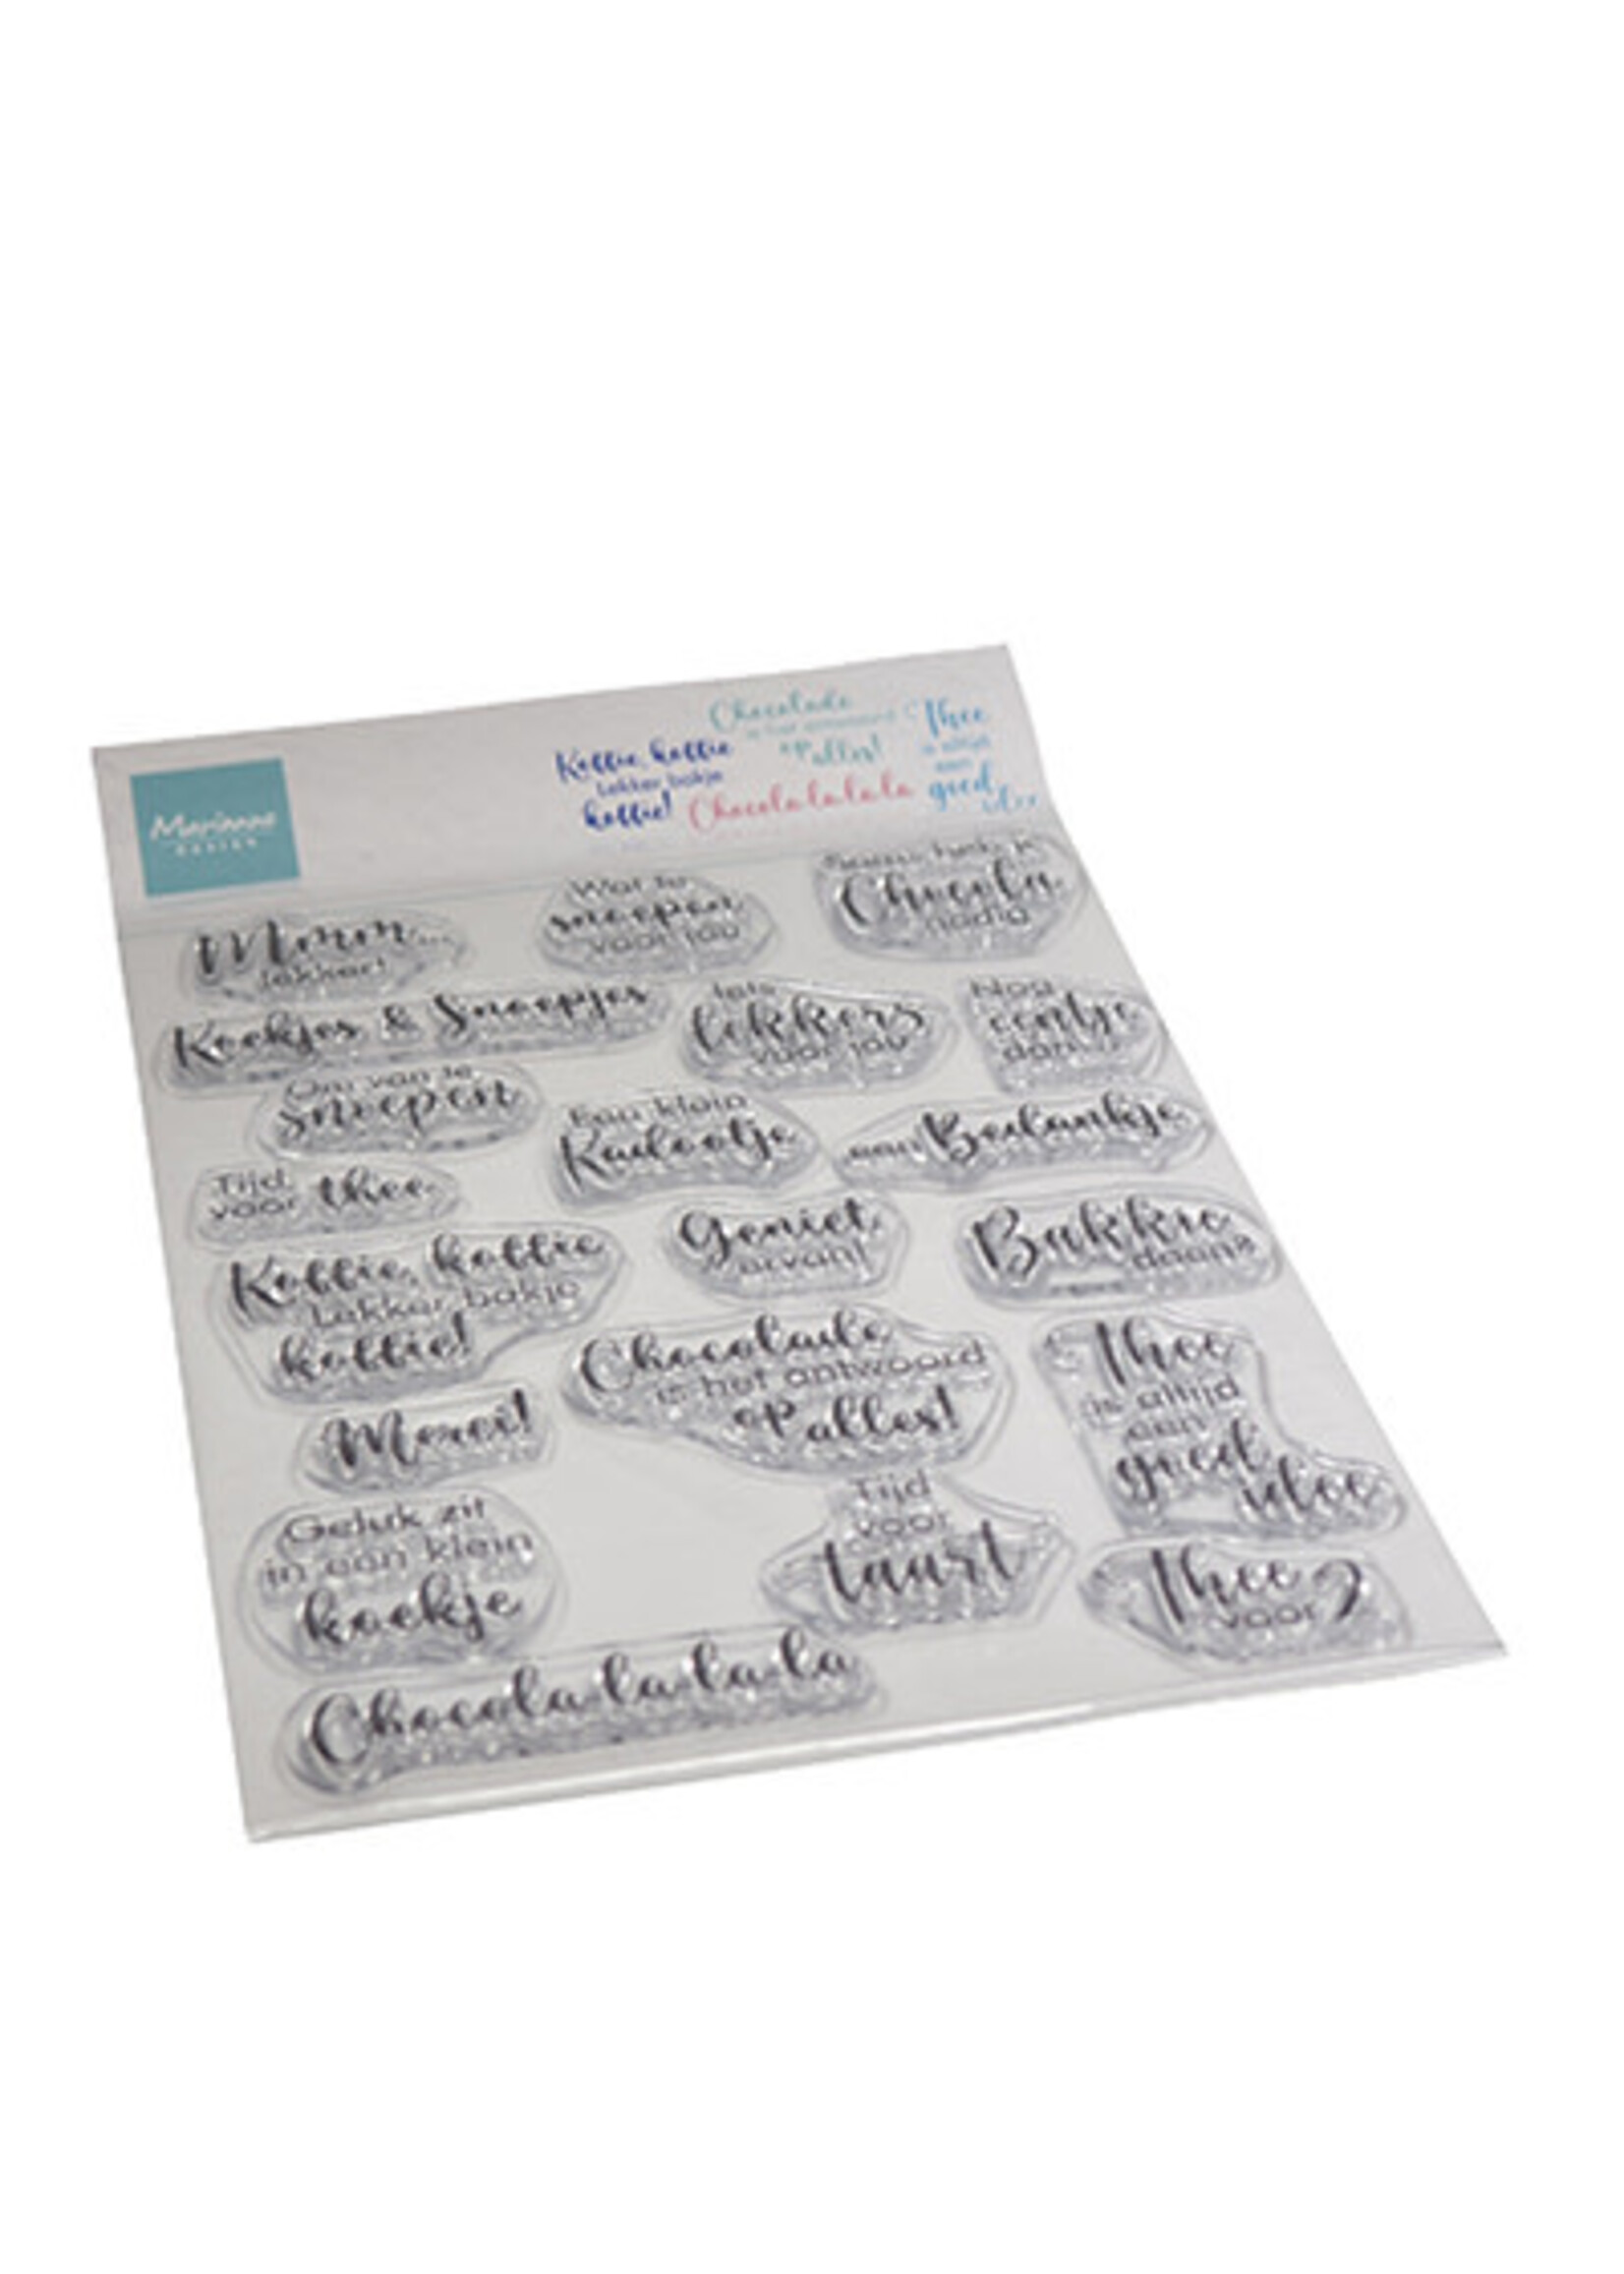 Marianne
DESIGN
Koffie, koffie
Lekker bakje
koffie!
Chocolade
is het antwoord
op alles!
Chocola-la-la-la
Thee
is altijd
een
goed
idee
Mmm...
lekker!
Wat te
snoepen
voor jou
Chocola
nodig
Koekjes & Snoepjes
Iets
lekkers
voor jou
Nog
eentje
dan
Om van te
snoepen
Een klein
Kadootje
een Bedankje
Tijd
voor thee
Koffie, koffie
Lekker bakje
koffie!
Geniet
ervan!
Bakkie
doen?
Chocolade
is het antwoord
op alles!
Thee
is altijd
een
goed
idee
Merci!
Geluk zit
in een klein
koekje
Tijd
voor
taart
Thee
voor 2
Chocola-la-la-la